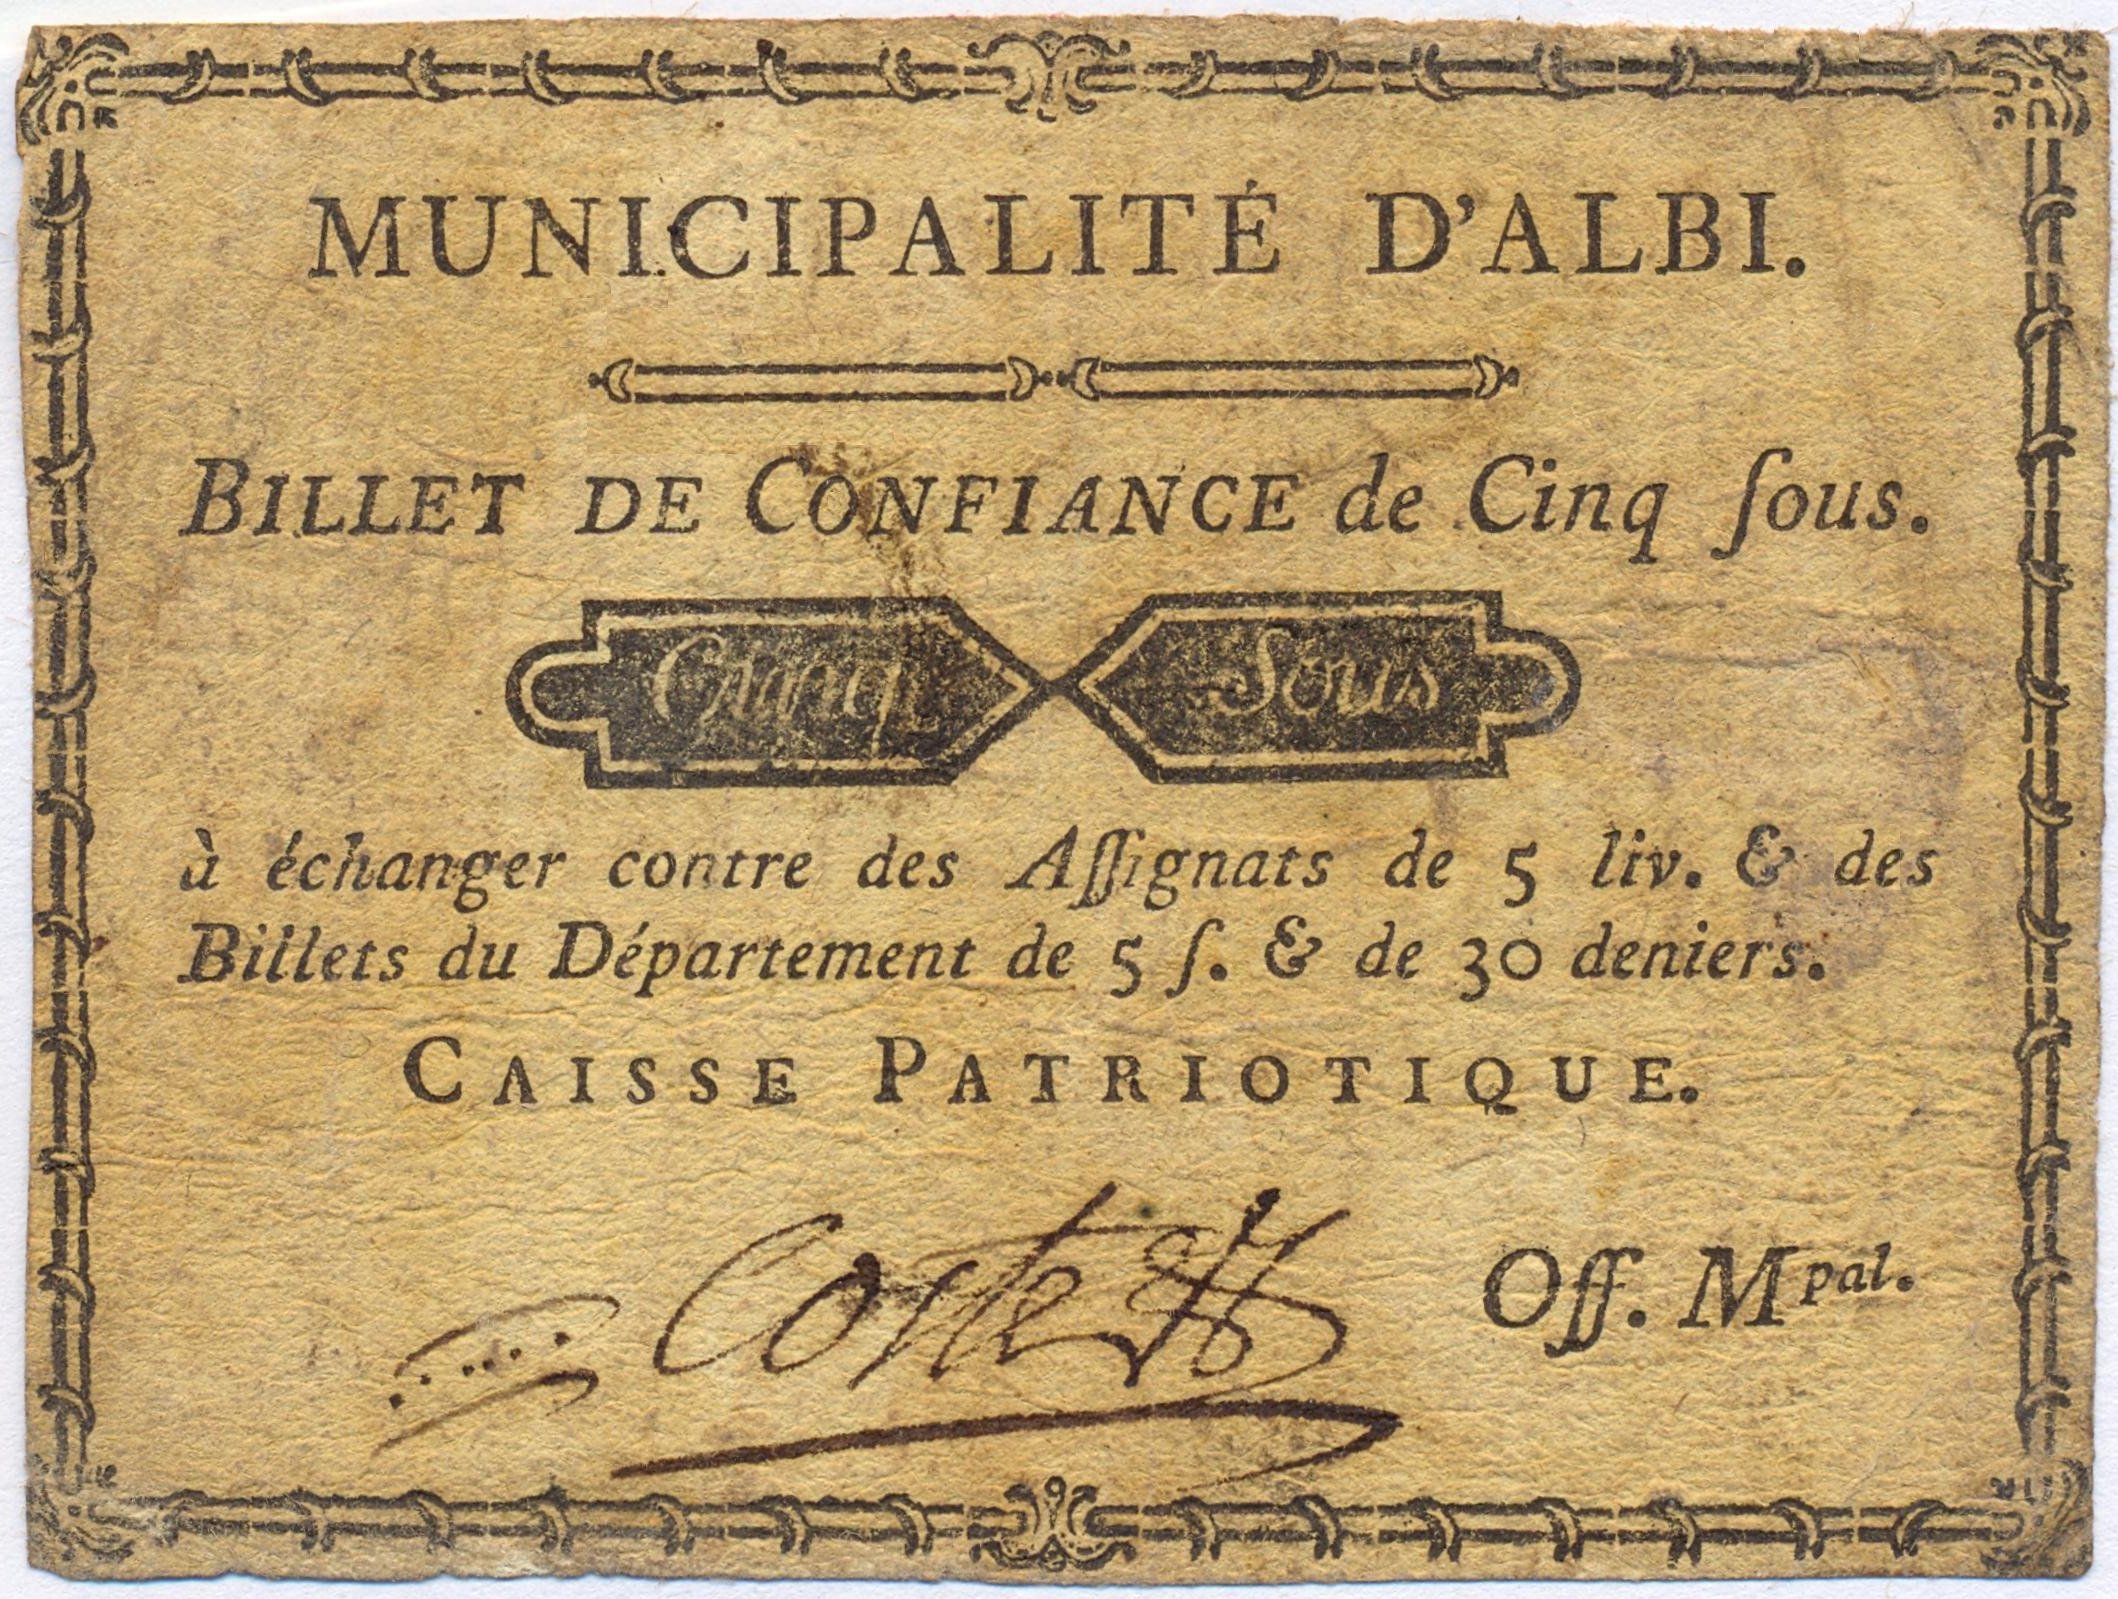 MUNICIPALITÉ D'ALBI.
BILLET DE CONFIANCE de Cinq ſous.
Cinq Sous
à échanger contre des Aſſignats de 5 liv. & des
Billets du Département de 5 ſ. & de 30 deniers.
CAISSE PATRIOTIQUE.
Coste Off. Mpal.